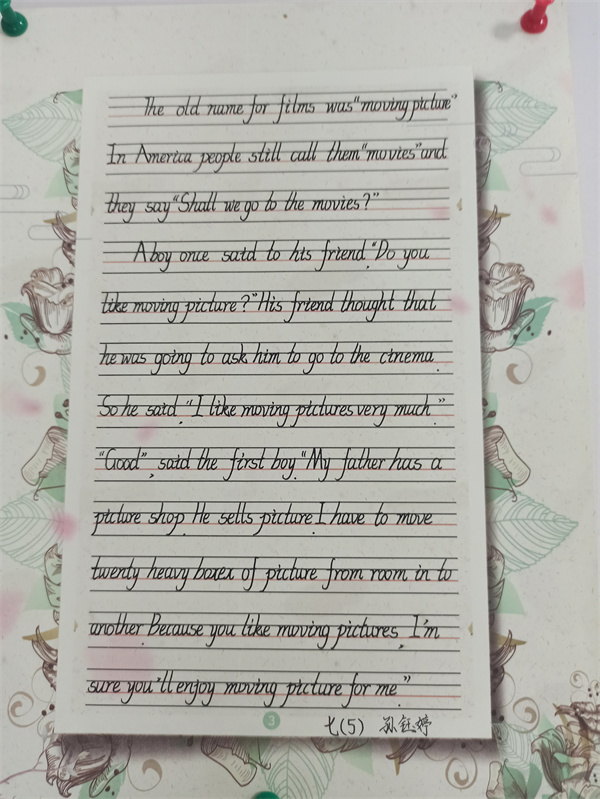 The old name for films was "moving picture"
In America people still call them "movies" and
they say "Shall we go to the movies?"
A boy once said to his friend, "Do you
like moving picture?" His friend thought that
he was going to ask him to go to the cinema.
So he said, "I like moving pictures very much."
"Good", said the first boy. "My father has a
picture shop. He sells picture. I have to move
twenty heavy boxex of picture from room in to
another. Because you like moving pictures, I'm
sure you'll enjoy moving picture for me."
3
七(5) 孙钰婷